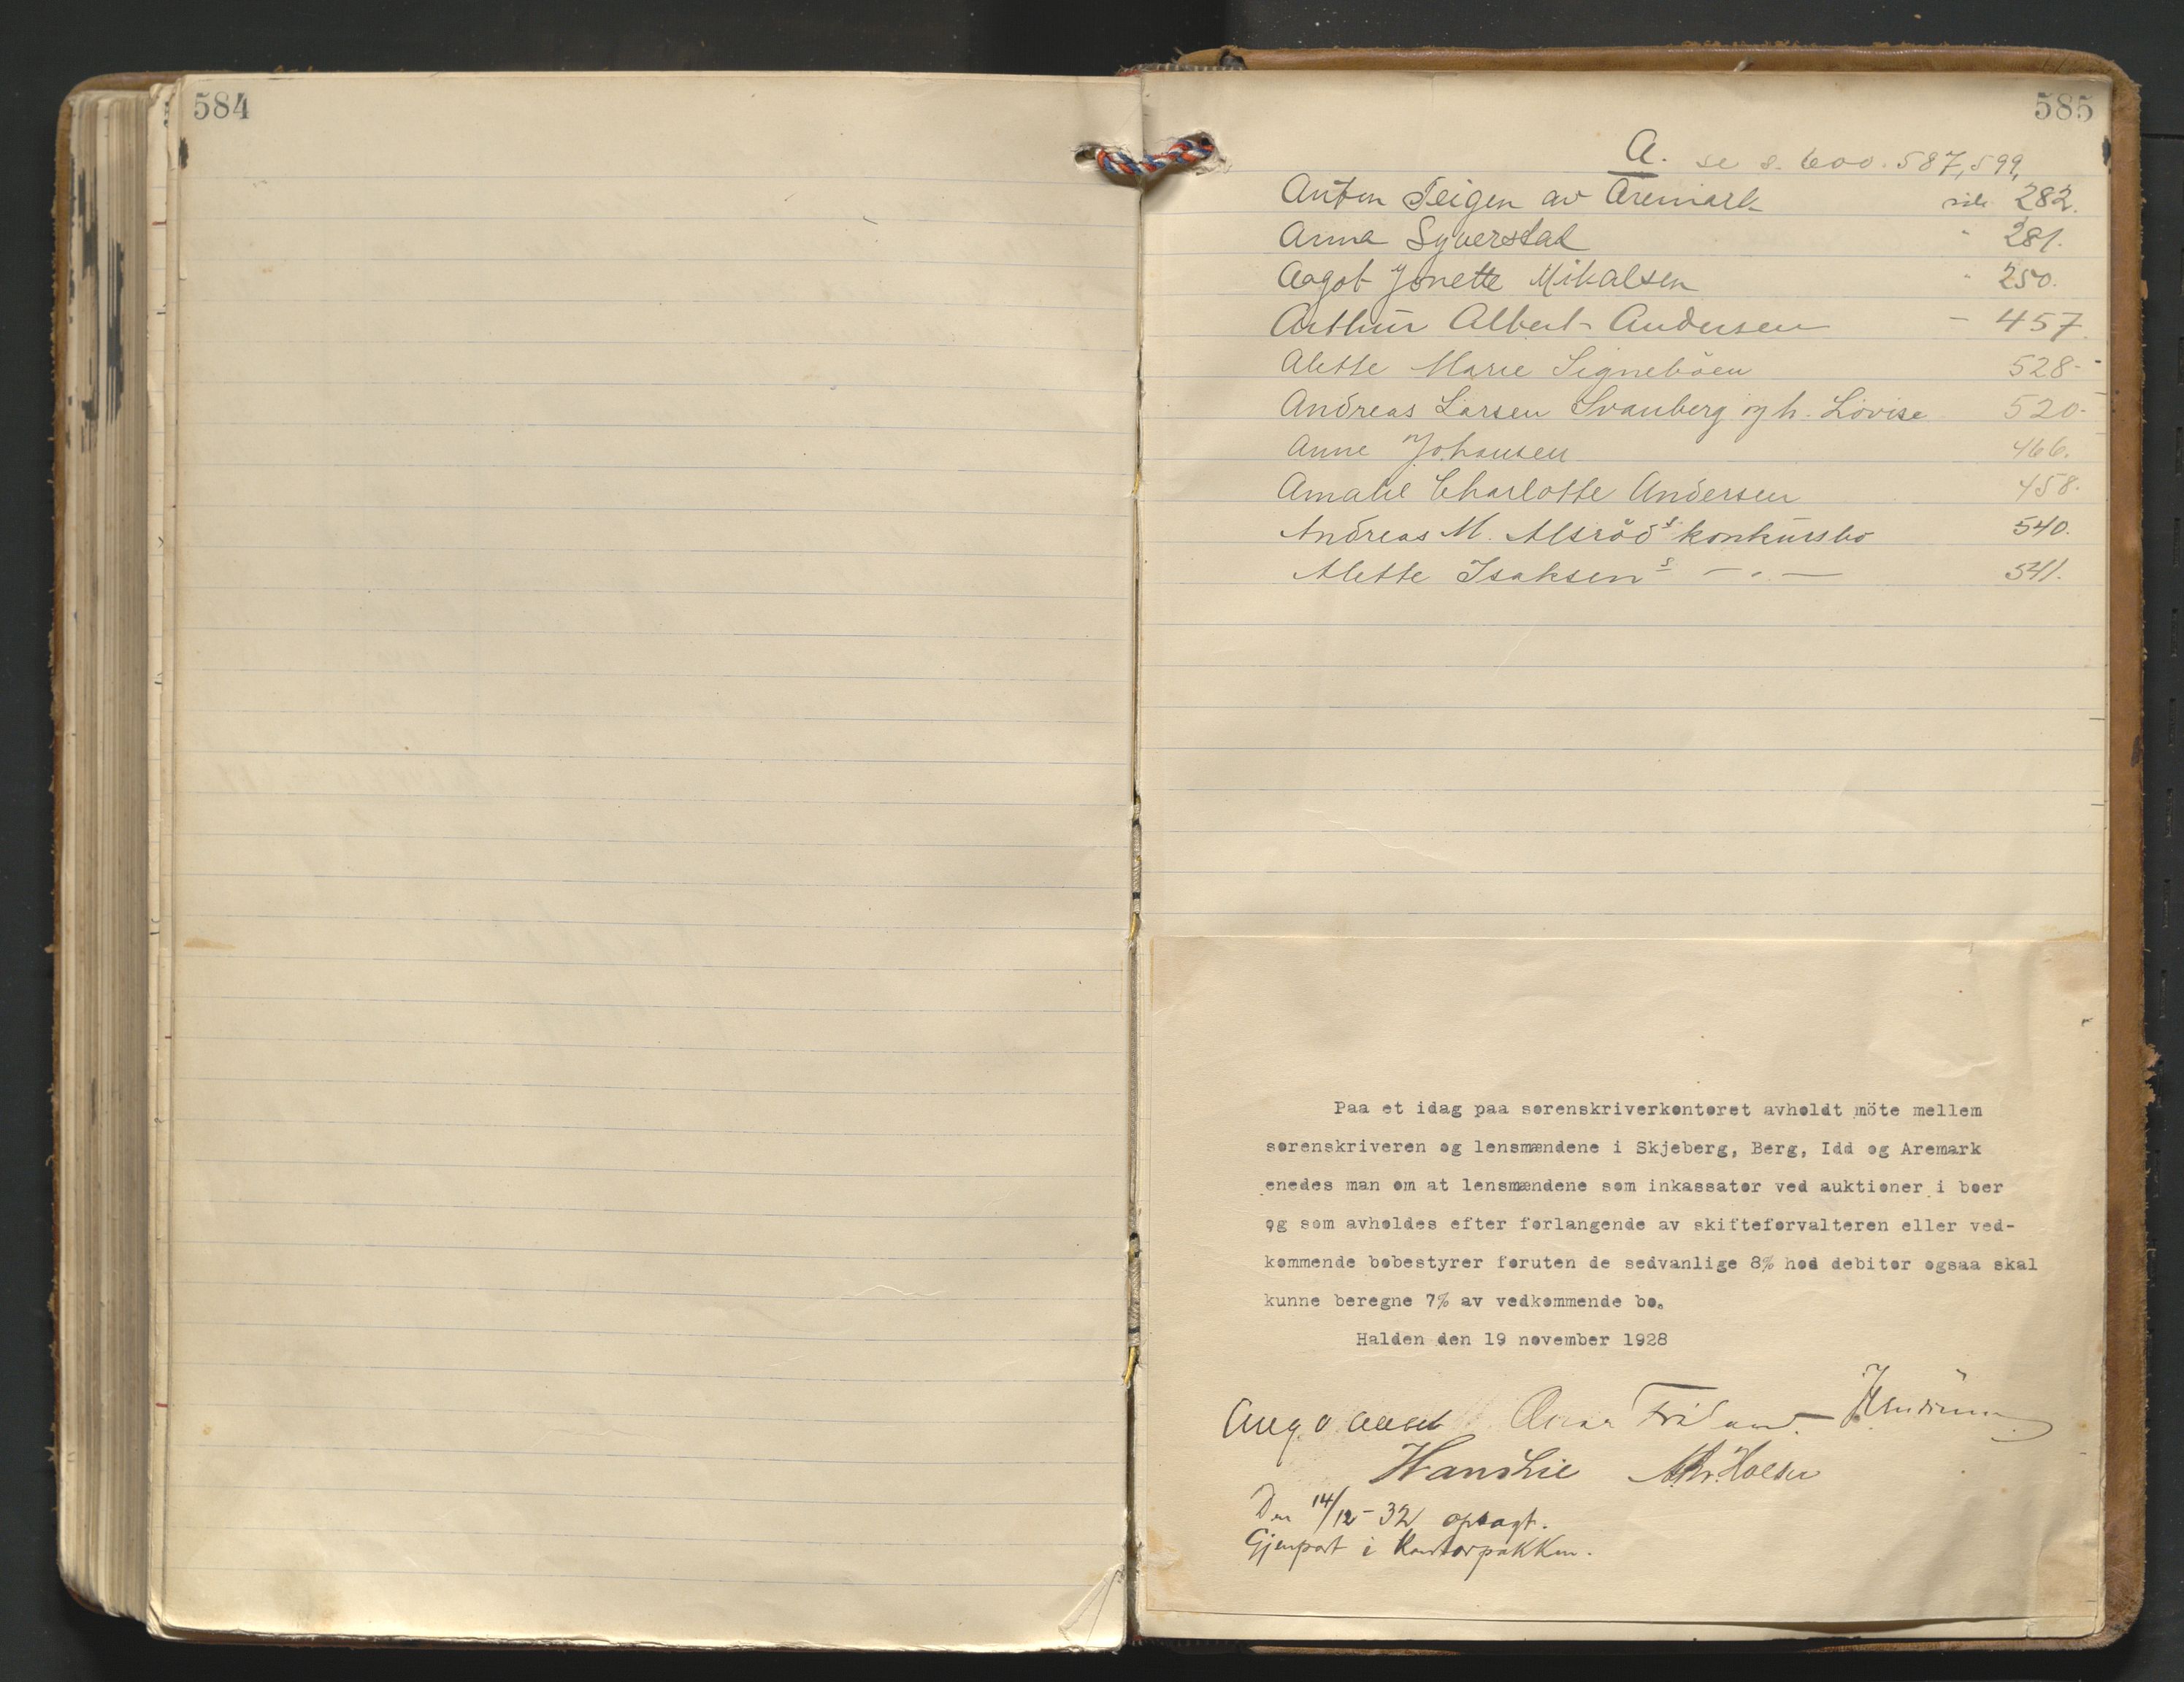 584
585
A. se s. 600. 587, 599,
Anton Teigen av Aremark side 282.
Anna Syverstad " 281.
Aagot Jonette Mikalsen " 250.
Arthur Albert Andersen - 457.
Alette Marie Signebøen 528.-
Andreas Larsen Svanberg og h. Lovise 520.-
Anne Johansen 466.
Amalie Charlotte Andersen 458.
Andreas M. Alsröds konkursbo 540.
Alette Isaksens — " — 541.
Paa et idag paa sorenskriverkontoret avholdt möte mellem
sorenskriveren og lensmændene i Skjeberg, Berg, Idd og Aremark
enedes man om at lensmændene som inkassator ved auktioner i boer
og som avholdes efter forlangende av skifteforvalteren eller ved-
kommende bobestyrer foruten de sedvanlige 8% hos debitor ogsaa skal
kunne beregne 7% av vedkommende bo.
Halden den 19 november 1928
Hans Lie
Den 14/12-32 opsagt.
Gjenpart i Kontorpakken.